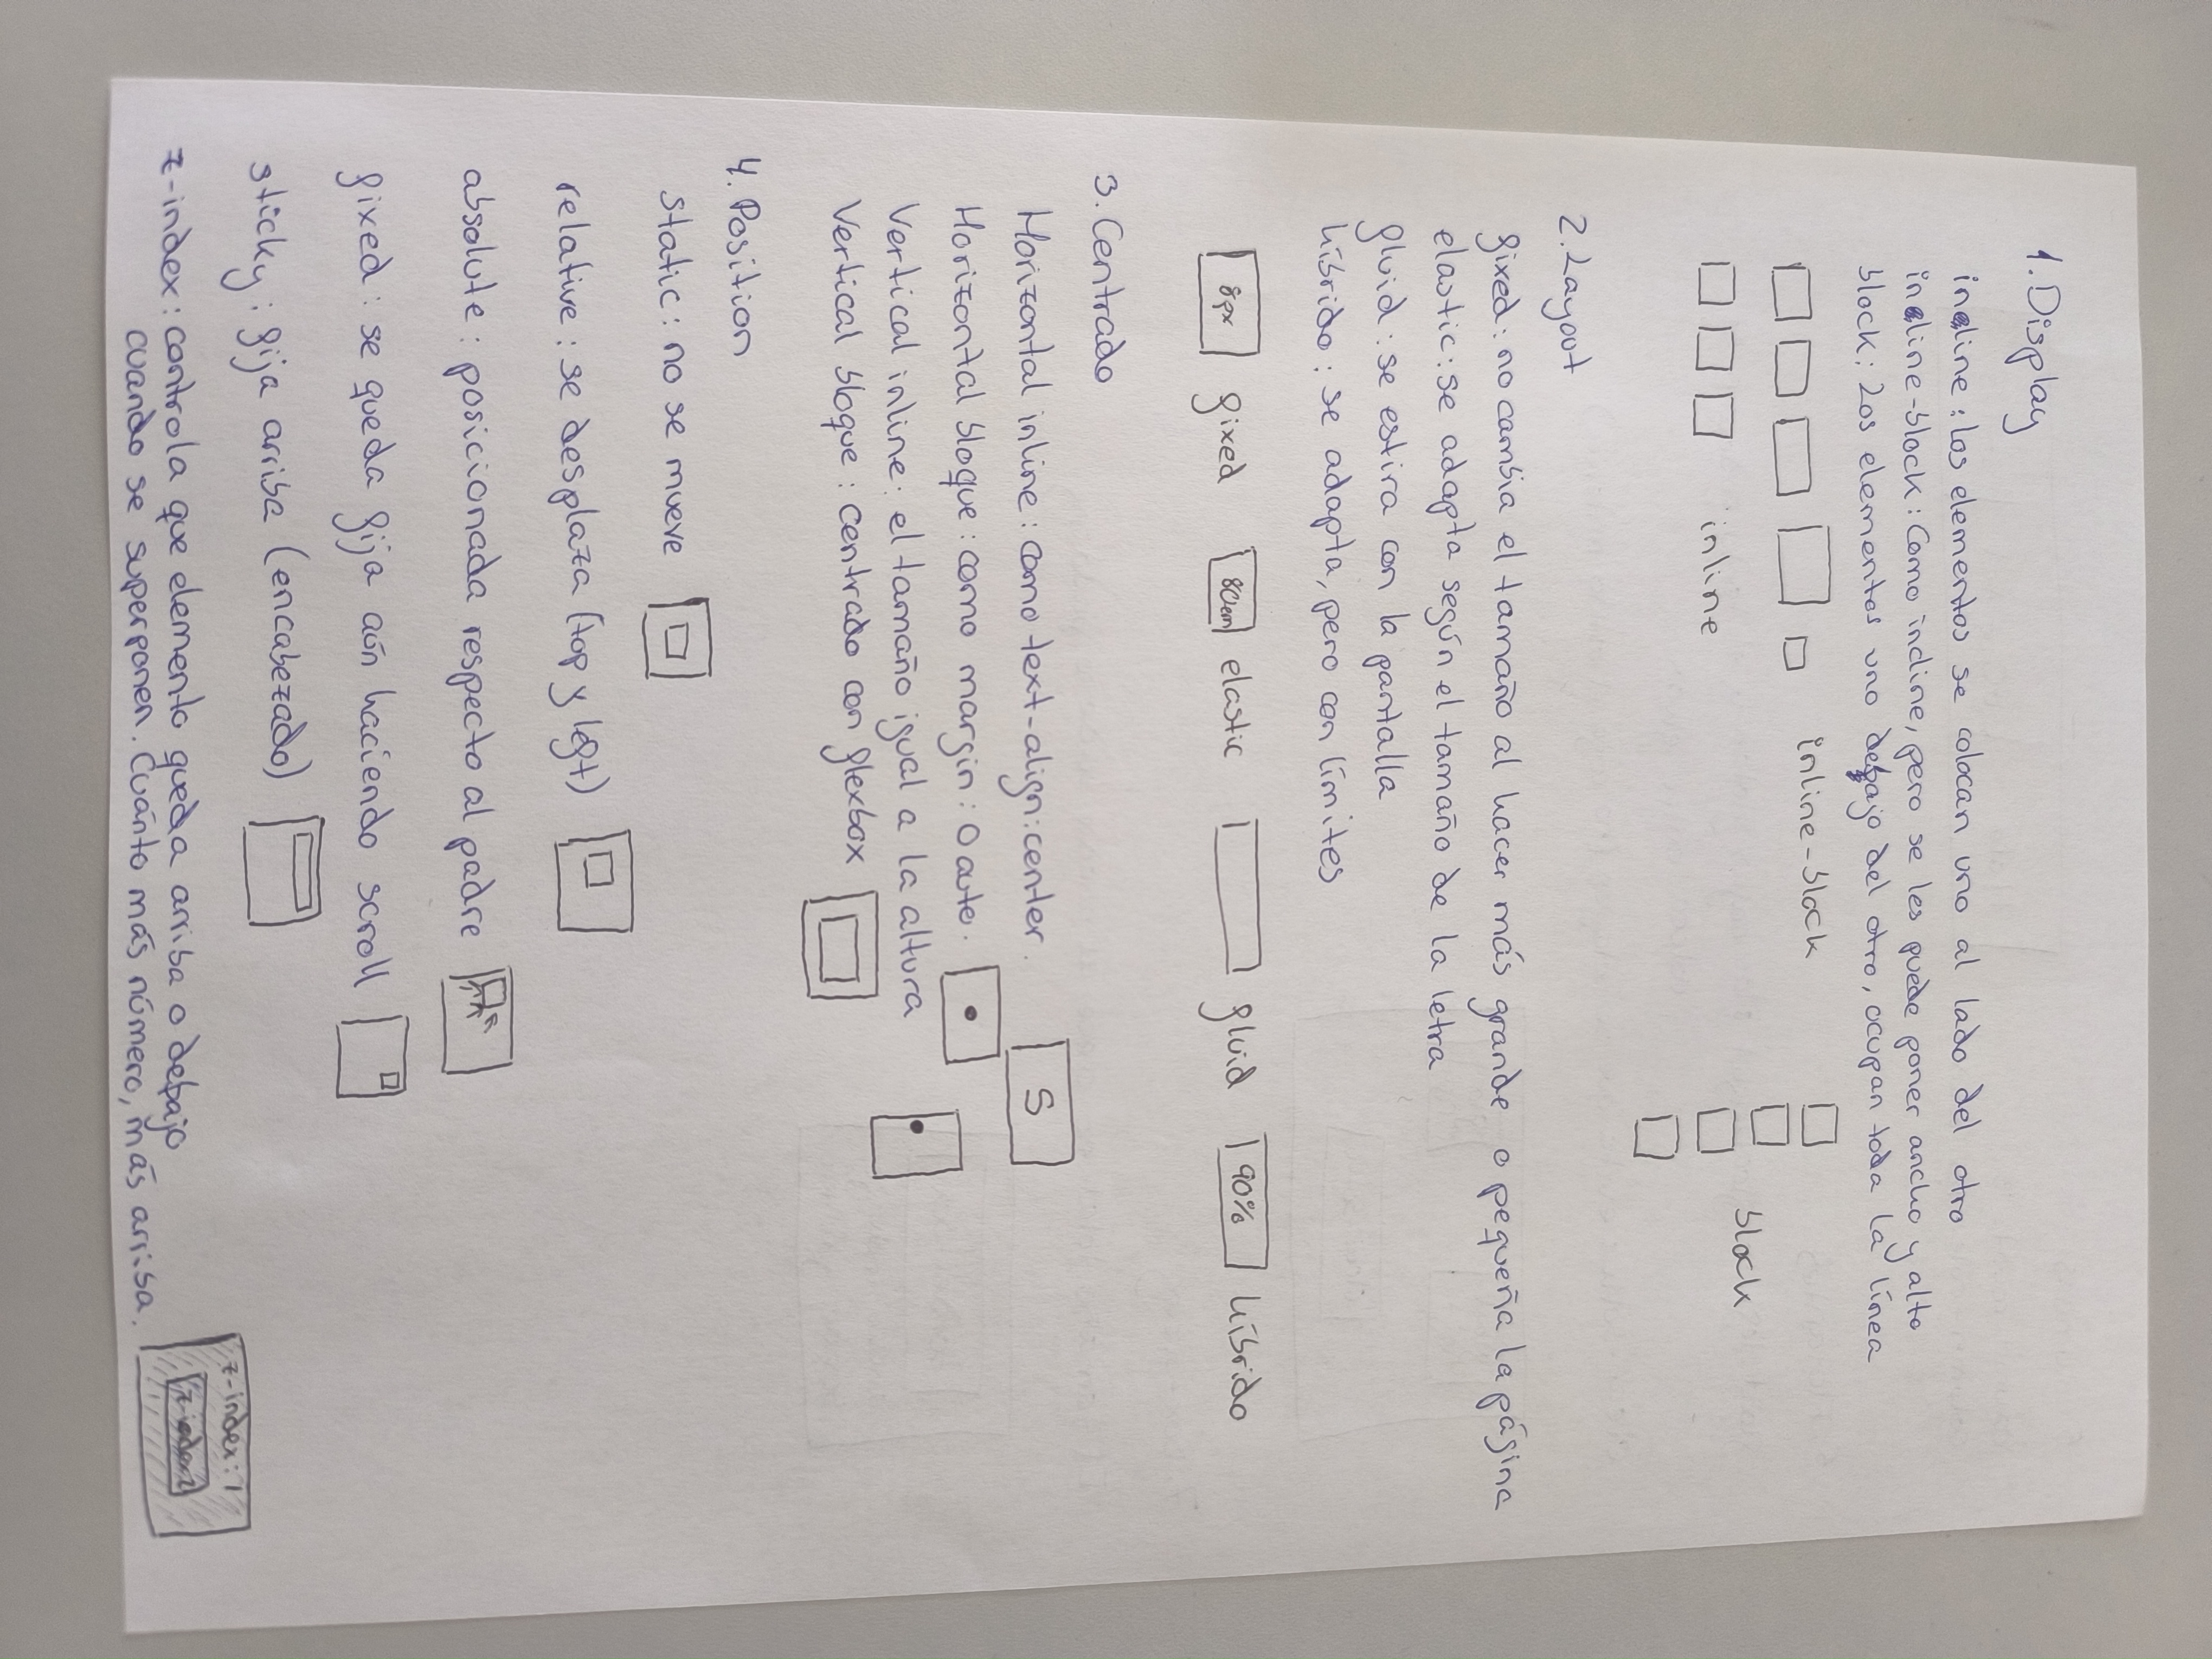 1. Display
inline: los elementos se colocan uno al lado del otro
inline-block: Como indine, pero se les puede poner ancho y alto
block: Los elementos uno debajo del otro, ocupan toda la línea
inline-block
inline
block
2. Layout
fixed: no cambia el tamaño al hacer más grande o pequeña la página
elastic: se adapta según el tamaño de la letra
fluid: se estira con la pantalla
híbrido: se adapta, pero con límites
8px fixed 80em elastic fluid 90% híbrido
3. Centrado
Horizontal inline: como text-align: center.
S
Horizontal bloque: como margin: 0 auto.
Vertical inline: el tamaño igual a la altura
Vertical bloque: centrado con flexbox
4. Position
static: no se mueve
relative: se desplaza (top y left)
absolute: posicionada respecto al padre
fixed: se queda fija aún haciendo scroll
sticky: fija arriba (encabezado)
z-index: controla que elemento queda arriba o debajo
cuando se superponen. Cuánto más número, más arriba.
z-index: 1
z-index 2